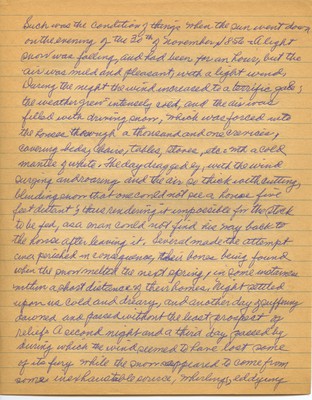 Such was the condition of things when the sun went down
on the evening of the 30th of November, 1856 - A light
snow was falling, and had been for an hour, but the
air was mild and pleasant, with a light wind,
During the night the wind increased to a terrific gale;
the weather grew intensely cold, and the air was
filled with driving snow, which was forced into
the house through a thousand and one crevices,
covering beds, chairs, tables, stoves, etc. with a cold
mantle of white. The day dragged by, with the wind
surging and roaring and the air so thick with cutting,
blinding snow that one could not see a house five
feet distant; thus rendering it impossible for the stock
to be fed, as a man could not find his way back to
the house after leaving it. Several made the attempt
and perished in consequence, their bones being found
when the snow melted the next spring, in some instances
within a short distance of their homes. Night settled
upon us cold and dreary, and another day of suffering
dawned and passed without the least prospect of
relief. A second night and a third day passed by
during which the wind seemed to have lost some
of its fury while the snow appeared to come from
some inexhaustible source, whirling, eddying